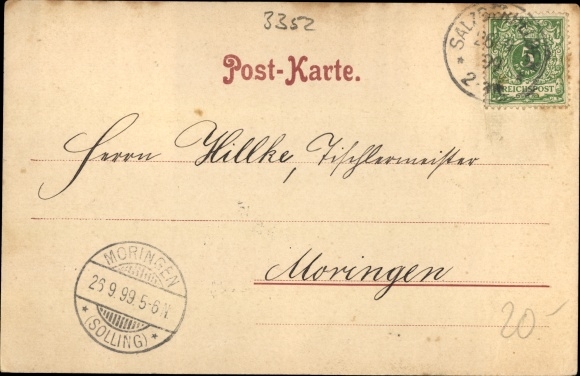 3352
5
REICHSPOST
Post-Karte.
Herrn Hillke, Tischlermeister
Moringen
MORINGEN
26.9.99.5-6.N.
* (SOLLING) *
20.-